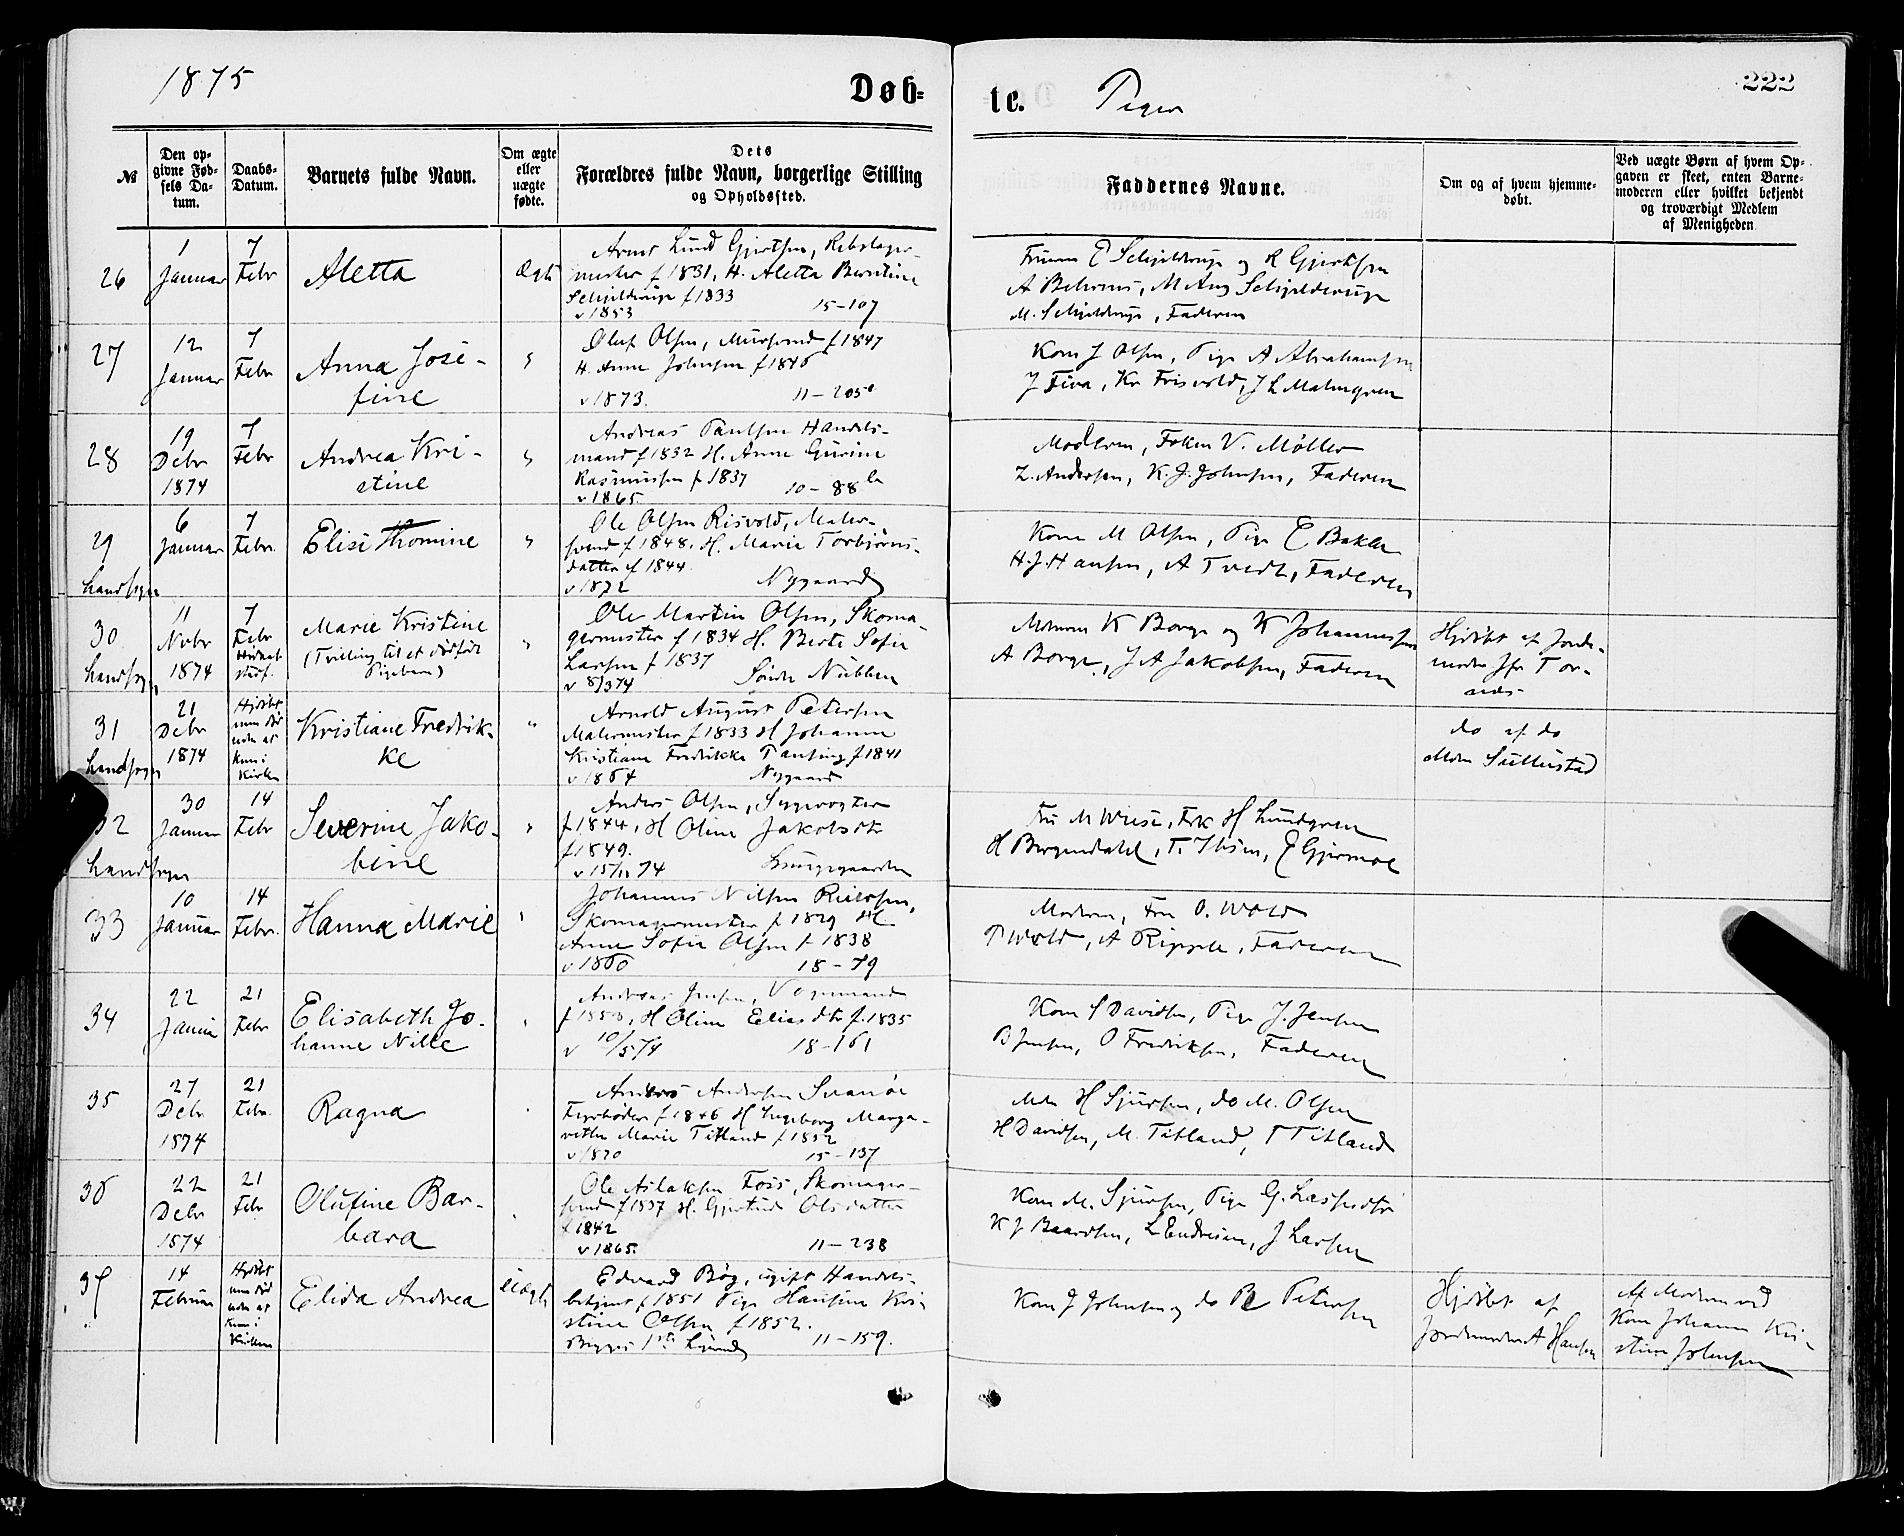 1875
Døb=
te.
Piger
222
№
Den op-
givne Fød-
sels Da-
tum.
Daabs-
Datum.
Barnets fulde Navn.
Om ægte
eller
uægte
fødte.
Dets
Forældres fulde Navn, borgerlige Stilling
og Opholdssted.
Faddernes Navne.
Om og af hvem hjemme-
døbt.
Ved uægte Børn af hvem Op-
gaven er skeet, enten Barne-
moderen eller hvilket bekjendt
og troværdigt Medlem
af Menigheden
26
1
Januar
7
Febr
Aletta
Ægte
Lund Gjertsen, Rebslager-
mester f 1831, H. Aletta Berntine
Schjelderup f 1833
v 1853 15-107
E Schjelderup og R Gjertsen
A Behrens, M Aug Schjelderup
M. Schjelderup, Faderen
27
12
Januar
7
Febr
Anna Jose-
fine
"
Oluf Olsen, Mursvend f 1847
H. Anne Johnsen f 1846
v 1873. 11-205
Kone J Olsen, Pige A Abrahamsen
J Fiva, Kr Frisvold, J L Malmgren
28
19
Debr
1874
7
Febr
Andrea Kri-
stine
"
Andreas Paulsen Handels-
mand f 1832 H. Anne Gurine
Rasmussen f 1837
v 1865. 10-88
Moderen, Frøken V. Møller
Z. Andersen, K. J. Johnsen, Faderen
29
Landsogn
6
Januar
7
Febr.
Elise Thomine
"
Ole Olsen Risvold, Maler-
svend f 1848. H. Marie Torbjørns-
datter f 1844
v 1872 Nygaard
Kone M Olsen, Pige E Bakke
H. J. Hansen, A Tvedt, Faderen
30
Landsogn
11
Novbr
1874
7
Febr
Marie Kristine
(Tvilling til et dødfødt
Pigebarn)
"
Ole Martin Olsen, Skoma-
germester f 1834 H. Berte Sofie
Larsen f 1837
v 8/3 74 Søndre Nubben
K Borge og K Johannessen
A Borge, J A Jakobsen, Faderen
Hjdøbt af Jorde-
moder Jfr Tor-
31
Landsogn
21
Debr
1874
Hjdøbt
men død
uden at
kom i
Kirken
Kristiane Fredrik-
ke
"
Arnold August Petersen
Malermester f 1833 H Johanne
Kristiane Fredrikke f 1841
v 1864 Nygaard
do af do
32
Landsogn
30
Januar
14
Febr
Severine Jako-
bine
"
Anders Olsen,
f 1844, H Oline Jakobsdtr
f 1849.
v 15/11 74 Lungegaarden
Fru M Wiese, Frk H Lundgren
H Bergendahl, T. Ibsen, E Gjermoe
33
10
Januar
14
Febr.
Hanna Marie
"
Johannes Nilsen
Skomagermester f 1829 H
Anne Sofie Olsen f 1838
v 1860 18-79
Moderen, Fru O. Wold
P Wold, A Rippel, Faderen
34
22
Januar
21
Febr
Elisabeth Jo-
hanne Nille
"
Andreas Jensen, Vognmand
f 1850, H Oline Eliasdtr f. 1835
v 10/5 74 18-161
Kone S Davidsen, Pige J. Jensen
B Jensen, O Fredriksen, Faderen
35
27
Debr
1874
21
Febr.
Ragna
Anders Andersen Svanøe
Fyrbøder f 1846 H Ingeborg Marga-
rethe Marie Titland f 1852
v 1870 15-137
H Sjursen, do M. Olsen
H Davidsen, M. Titland, T Titland
36
22
Debr
1874
21
Febr
Olufine Bar-
bara
Ole Aslaksen Foss, Skomager-
svend f 1837 H. Gjertrud Olsdatter
f 1842
v 1865. 11-238
Kone M. Sjursen, Pige G. Lassesdtr
K J Baardsen, L Endresen, J Larsen
37
14
Februar
Hjdøbt
men død
uden at
kom i
Kirken
Elida Andrea
Uægte
Edvard Bøg, ugift Handels-
betjent f 1851 Pige Hansine Kri-
stine Olsen f 1852.
Begges 1ste 11-159.
Kone J Johnsen og do B Petersen
Hjdøbt af
Jordemoder A Hansen
Af Moderen ved
Kone Johanne Kri-
stine Johnsen